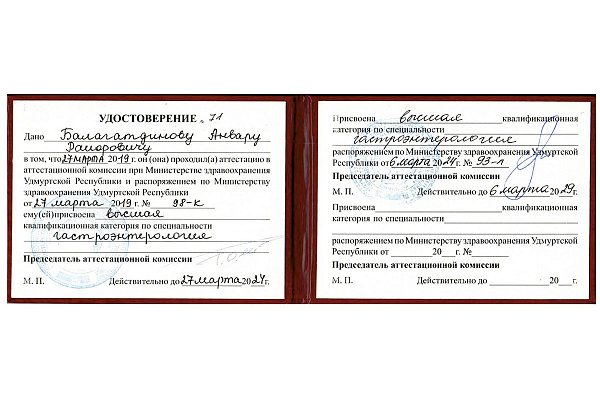 УДОСТОВЕРЕНИЕ № 71
Дано Балагатдинову Анвару
Рашоровичу
в том, что 27 марта 2019 г. он (она) проходил(а) аттестацию в
аттестационной комиссии при Министерстве здравоохранения
Удмуртской Республики и распоряжением по Министерству
здравоохранения Удмуртской Республики
от 27 марта 2019 г. № 98-к
ему(ей)присвоена высшая
квалификационная категория по специальности
гастроэнтерология
Председатель аттестационной комиссии
М. П. Действительно до 27 марта 2024г.
Присвоена высшая квалификационная
категория по специальности
гастроэнтерология
распоряжением по Министерству здравоохранения Удмуртской
Республики от 6 марта 2024г. № 93-л
Председатель аттестационной комиссии
М. П. Действительно до 6 марта 2029г.
Присвоена квалификационная
категория по специальности
распоряжением по Министерству здравоохранения Удмуртской
Республики от 20 г. №
Председатель аттестационной комиссии
М. П. Действительно до 20 г.